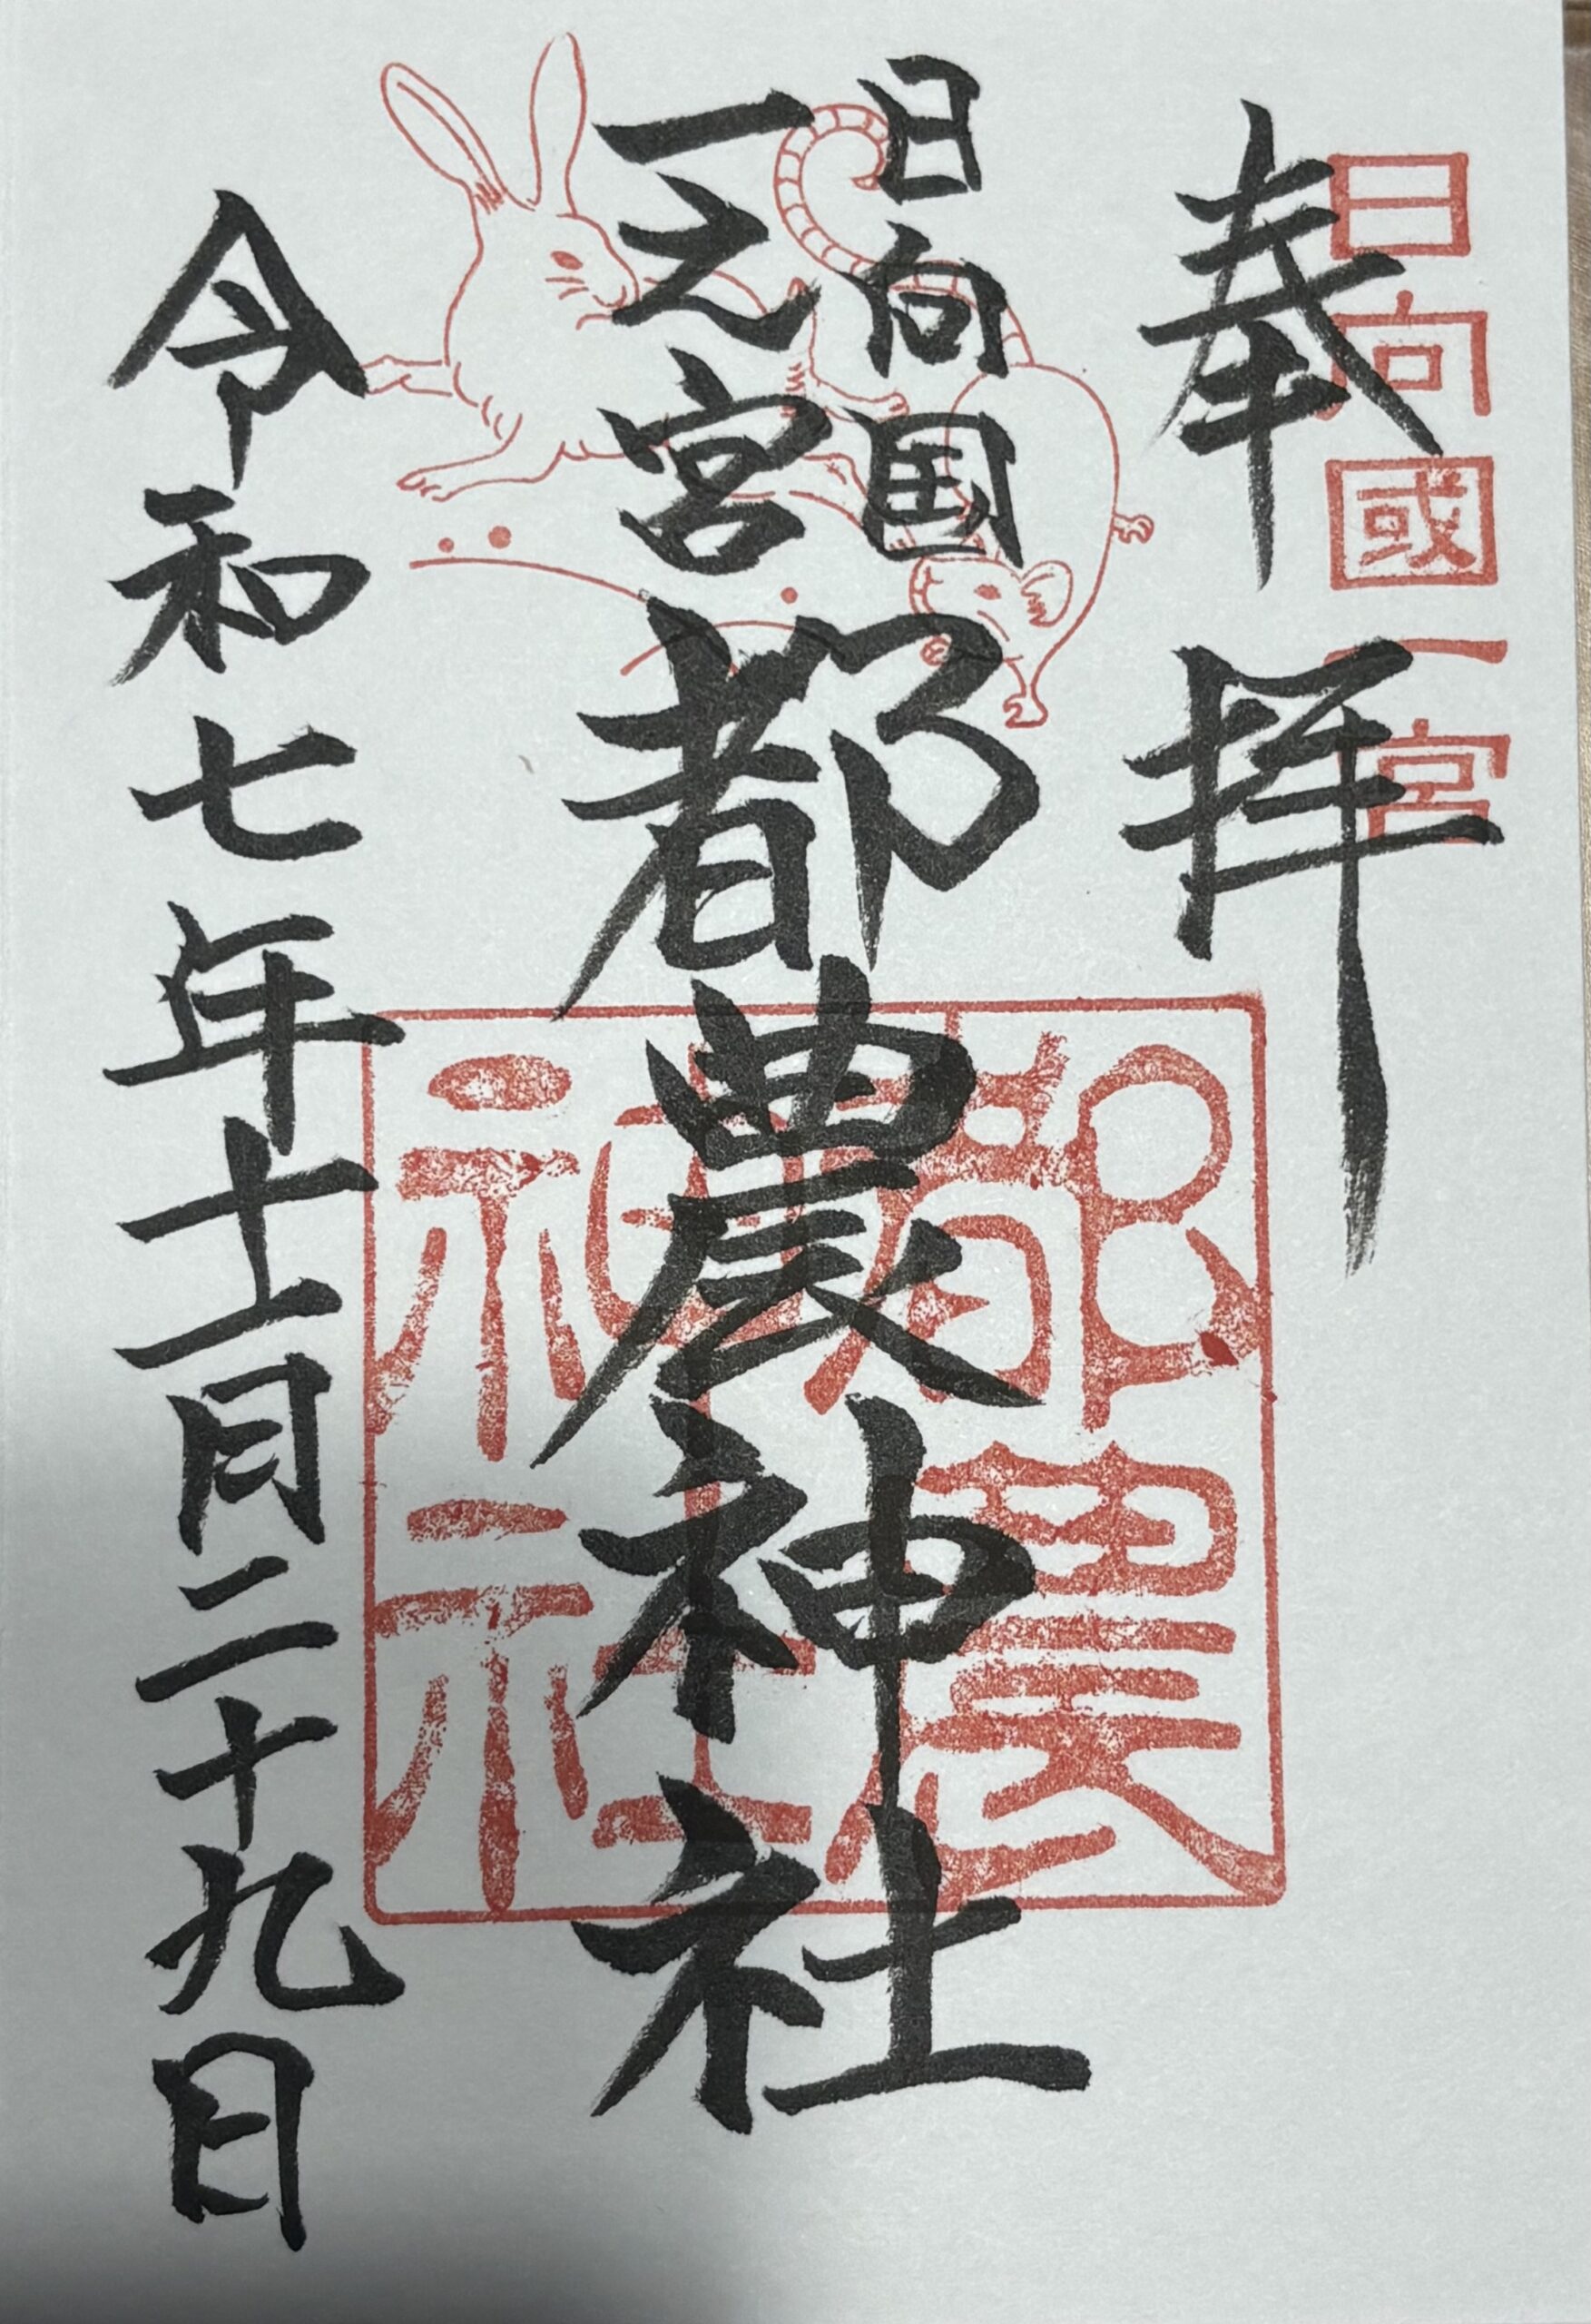 日向國一宮
奉拝
日向国
一之宮
都農神社
都農神社
令和七年十一月二十九日